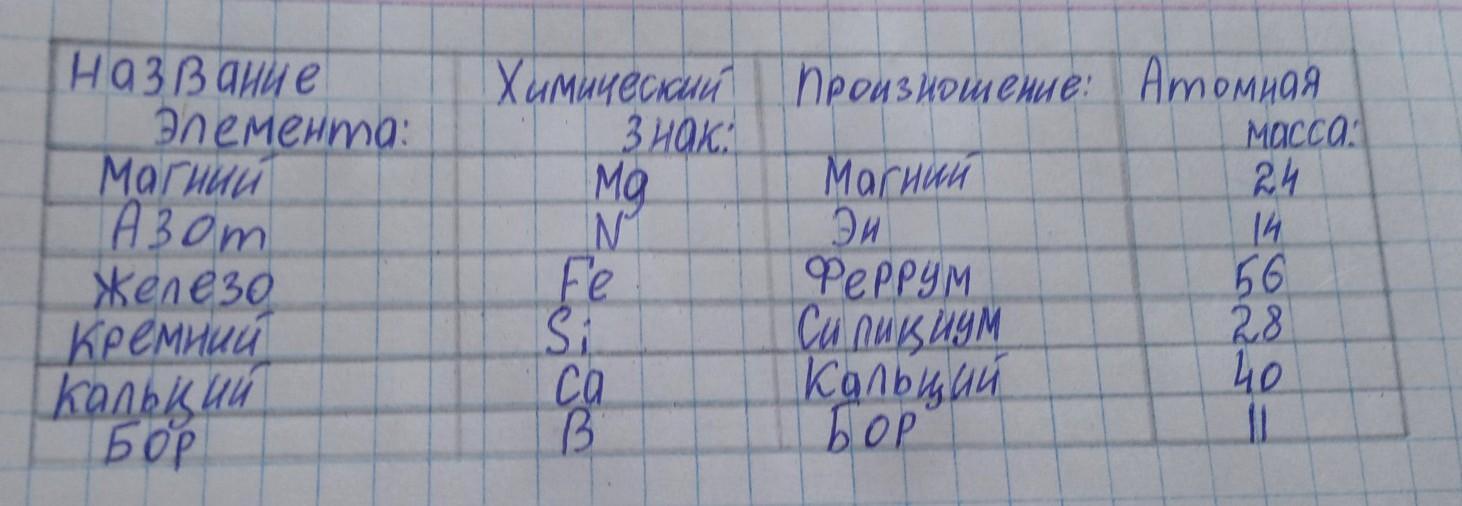 Название Химический Произношение: Атомная
Элемента: знак: масса:
Магний Mg Магний 24
Азот N Эн 14
Железо Fe Феррум 56
Кремний Si Силициум 28
Кальций Ca Кальций 40
Бор B Бор 11